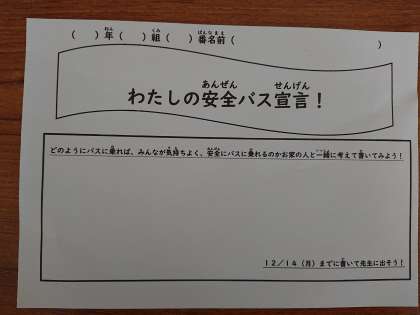 （　　）年（　　）組（　　）番名前（　　　　　　　　　　　　）
わたしの安全バス宣言！
どのようにバスに乗れば、みんなが気持ちよく、安全にバスに乗れるのかお家の人と一緒に考えて書いてみよう！
１２／１４（月）までに書いて先生に出そう！